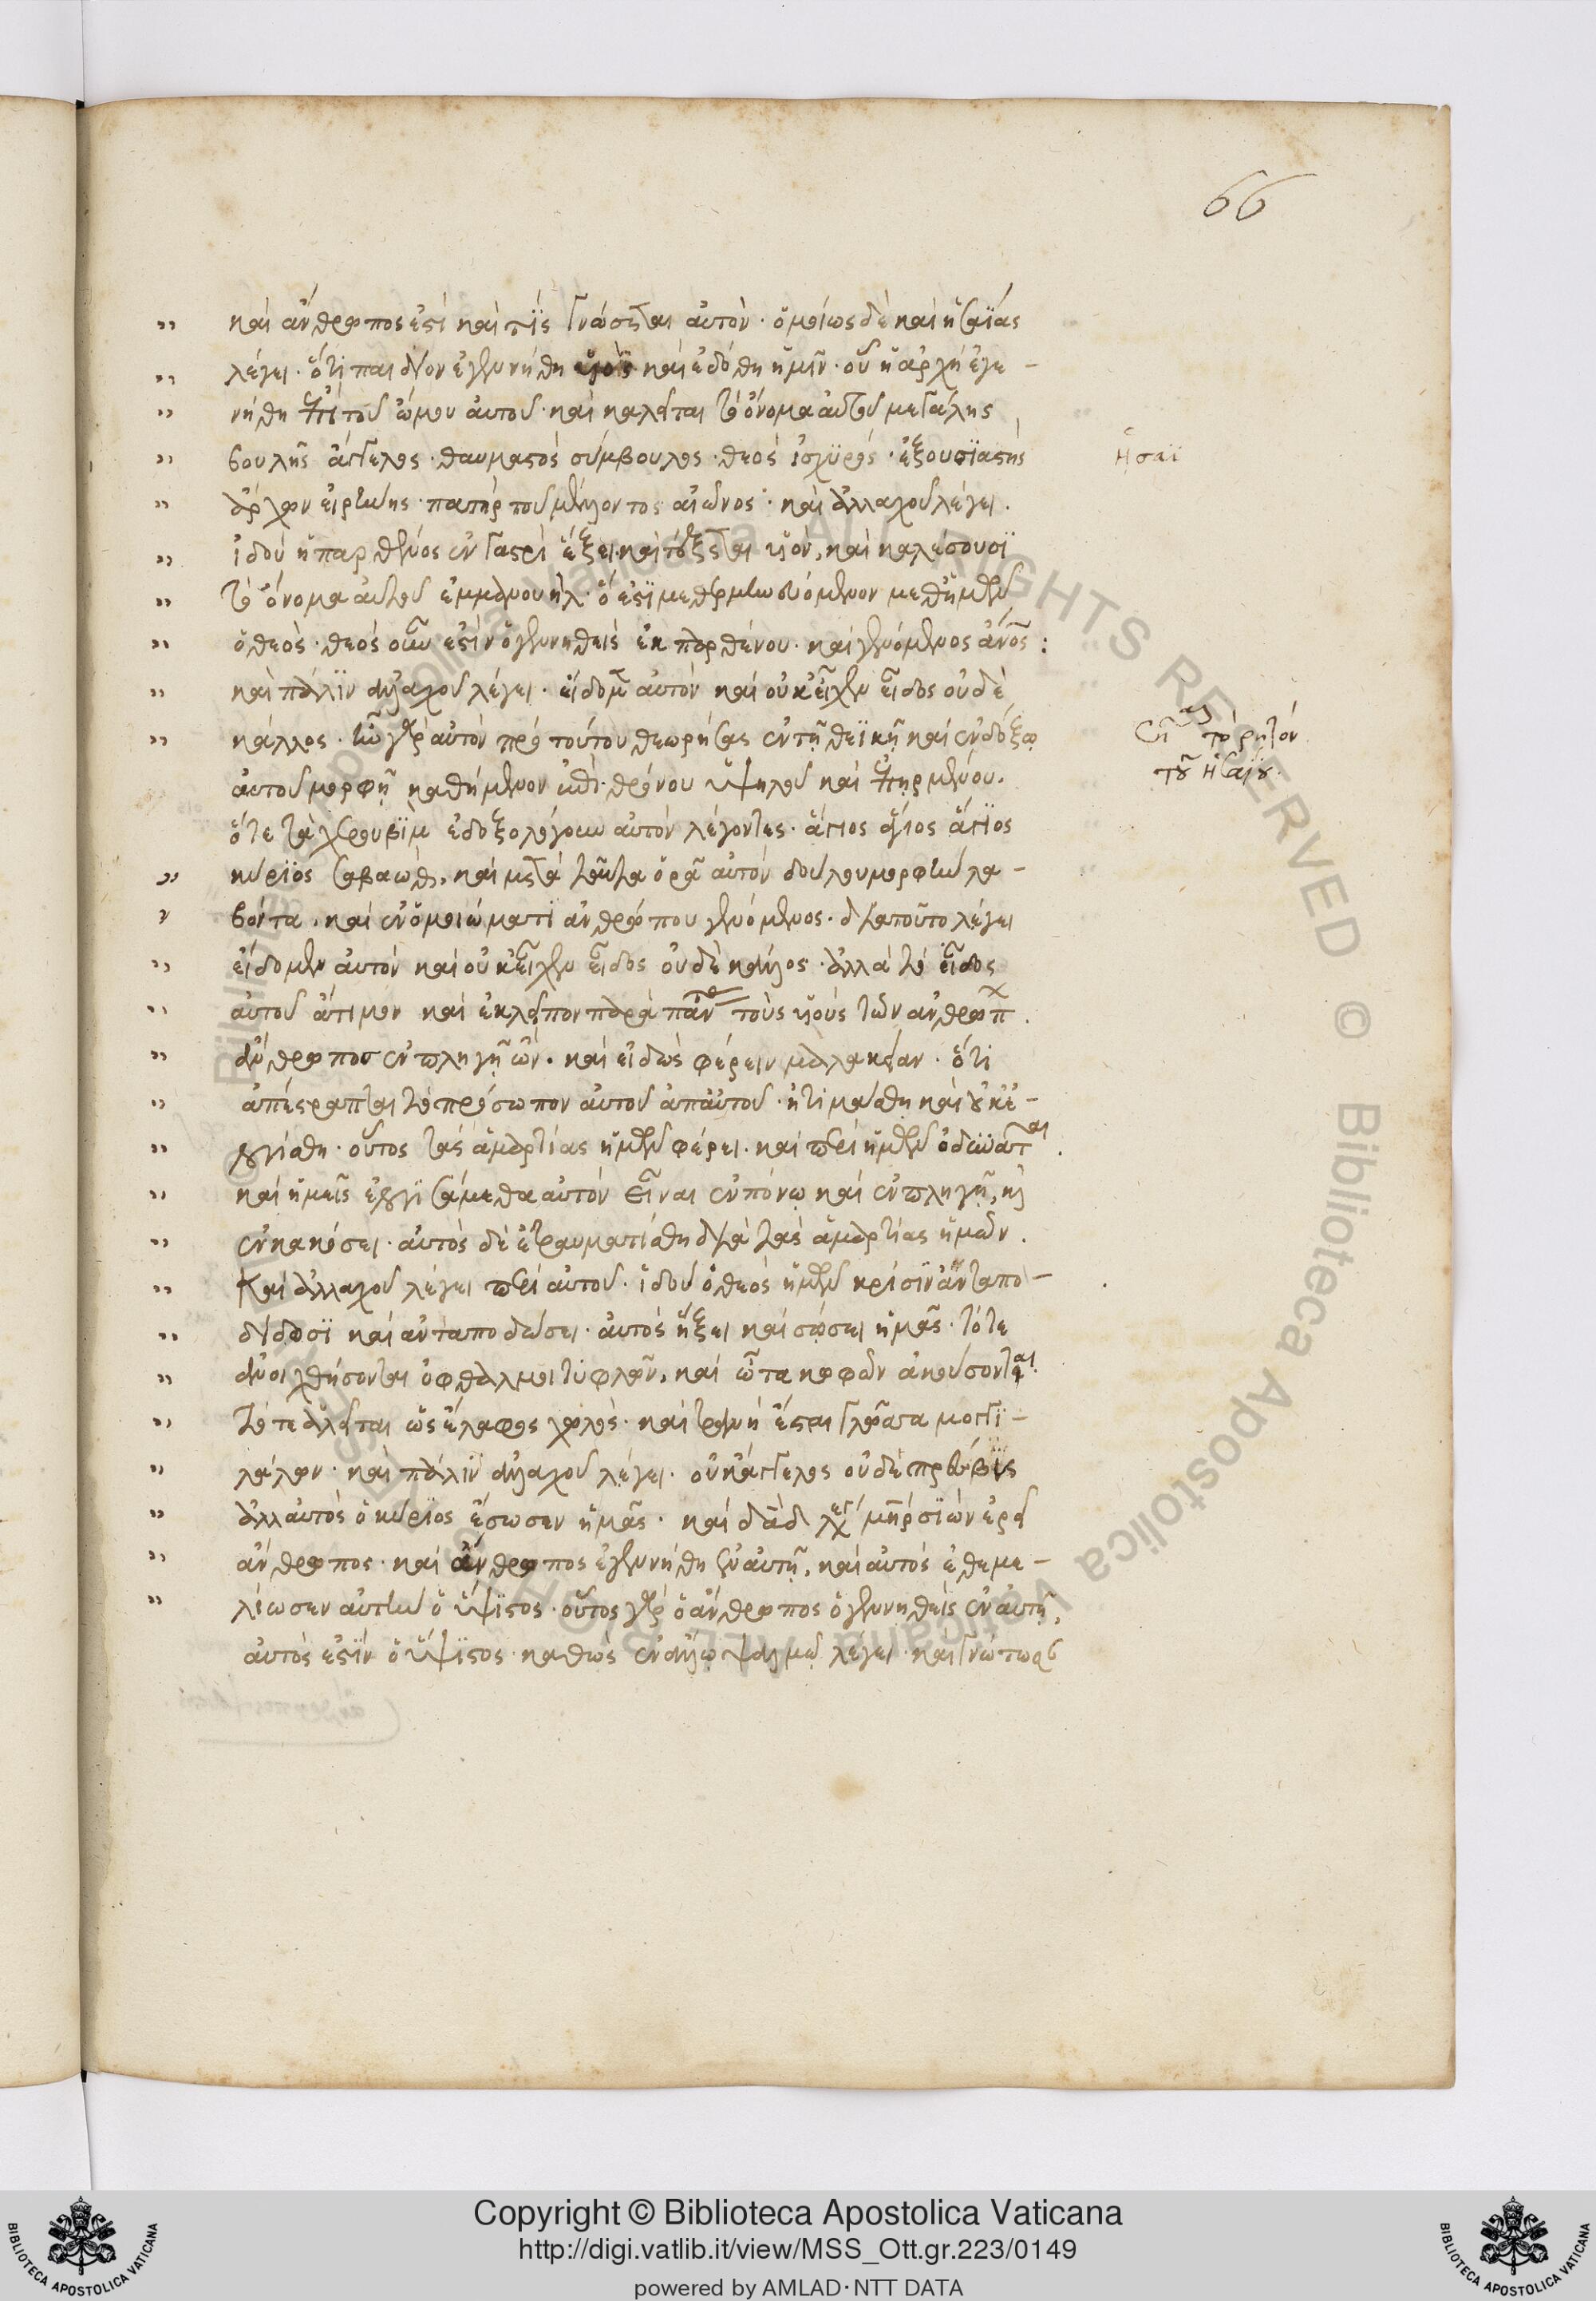 66
καὶ ἄνθρωπος ἐστὶ καὶ τίς γνώσεται αὐτόν · ὁμοίως δὲ καὶ ἡσαΐας
λέγει · ὅτι παιδίον ἐγεννήθη υἱὸς καὶ ἐδόθη ἡμῖν · οὗ ἡ ἀρχὴ ἐγε -
νήθη ἐπὶ τοῦ ὤμου αὐτοῦ · καὶ καλεῖται τὸ ὄνομα αὐτοῦ μεγάλης
βουλῆς ἄγγελος · θαυμαστὸς σύμβουλος · θεὸς ἰσχϋρός · ἐξουσϊαστὴς
Ἠσαϊ
ἄρχων εἰρήνης · πατὴρ τοῦ μέλλοντος αἰῶνος · καὶ ἀλλαχοῦ λέγει ·
ἰδοὺ ἡ παρθένος ἐν γαστρὶ ἕξει καὶ τέξεται υἱόν, καὶ καλέσουσϊ
τὸ ὄνομα αὐτοῦ ἐμμανουήλ · ὅ ἐστϊ μεθερμηνευόμενον μεθ ἡμῶν
ὁ θεός · θεὸς οὖν ἐστὶν ὁ γεννηθεὶς ἐκ παρθένου · καὶ γενόμενος ἄνος :
καὶ πάλϊν ἀλλαχοῦ λέγει · εἴδομεν αὐτὸν καὶ οὐκ εἶχεν εἶδος οὐδὲ
κάλλος · ἦν γὰρ αὐτὸν πρὸ τούτου θεωρήσας ἐν τῇ θεϊκῇ καὶ ἐνδόξῳ
ση τὸ ρητόν
τοῦ Ἠσαΐου ·
αὐτοῦ μορφῇ καθήμενον ἐπὶ θρόνου ὑψηλοῦ καὶ ἐπηρμένου ·
ὅτε τὰ χερουβϊμ ἐδοξολόγουν αὐτὸν λέγοντες · ἅγιος ἅγιος ἅγϊος
κύρϊος σαβαώθ, καὶ μετὰ ταῦτα ὁρᾷ αὐτὸν δούλου μορφὴν λα -
βόντα · καὶ ἐν ὁμοιώματϊ ἀνθρώπου γενόμενος · διατοῦτο λέγει
εἴδομεν αὐτὸν καὶ οὐκ εἶχεν εἶδος οὐδὲ κάλλος · ἀλλὰ τὸ εἶδος
αὐτοῦ ἄτιμον καὶ ἐκλεῖπον παρὰ πάντας τοὺς υἱοὺς τῶν ἀνθρώπ ·
ἄνθρωπος ἐν πληγῇ ὤν · καὶ εἰδὼς φέρειν μαλακίαν · ὅτι
ἀπέστραπται τὸ πρόσωπον αὐτοῦ ἀπαὐτοῦ · ἠτιμάσθη καὶ οὐκ ἐ -
λογίσθη · οὗτος τὰς ἁμαρτίας ἡμῶν φέρει · καὶ περὶ ἡμῶν ὀδυνᾶται ·
καὶ ἡμεῖς ἐλογϊσάμεθα αὐτὸν εἶναι ἐν πόνῳ καὶ ἐν πληγῇ, κὶ
ἐν κακώσει · αὐτὸς δὲ ἐτραυματίσθη διὰ τὰς ἁμαρτίας ἡμῶν ·
Καὶ ἀλλαχοῦ λέγει περὶ αὐτοῦ · ἰδοὺ ὁ θεὸς ἡμῶν κρίσϊν ἀνταπο -
δίδωσϊ καὶ ἀνταποδώσει · αὐτὸς ἥξει καὶ σώσει ἡμᾶς · τότε
ἀνοιχθήσονται ὀφθαλμοὶ τυφλῶν, καὶ ὦτα κωφῶν ἀκούσονται ·
τότε ἁλεῖται ὡς ἔλαφος χωλός · καὶ τρανὴ ἔσται γλῶσσα μογγϊ -
λάλων · καὶ πάλϊν ἀλλαχοῦ λέγει · οὐκ ἄγγελος οὐδὲ πρέσβϋς
ἀλλ αὐτὸς ὁ κύρϊος ἔσωσεν ἡμᾶς · καὶ δᾱδ λέγει μηρ σϊὼν ἐρεῖ
ἄνθρωπος · καὶ ἄνθρωπος ἐγεννήθη ἐν αὐτῇ, καὶ αὐτὸς ἐθεμε -
λίωσεν αὐτὴν ὁ ὕψϊστος · οὗτος γὰρ ὁ ἄνθρωπος ὁ γεννηθεὶς ἐν αὐτῇ,
αὐτὸς ἐστϊν ὁ ὕψϊστος · καθὼς ἐν ἄλλῳ ψαλμῷ λέγει · καὶ γνώτωσ
Copyright © Biblioteca Apostolica Vaticana
http://digi.vatlib.it/view/MSS_Ott.gr.223/0149
powered by AMLAD·NTT DATA
BIBLIOTECA APOSTOLICA VATICANA
BIBLIOTECA APOSTOLICA VATICANA